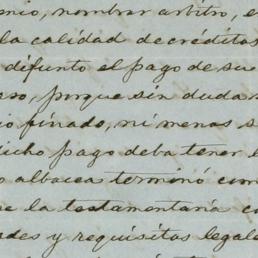 enio, nombrar arbitro, e
la calidad de créditos
difunto el pago de su
rso, porque sin duda n
io finado, ni menos s
dicho pago deba tener l
o albacea terminó com
e la testamentaría co
ades y requisitos legale